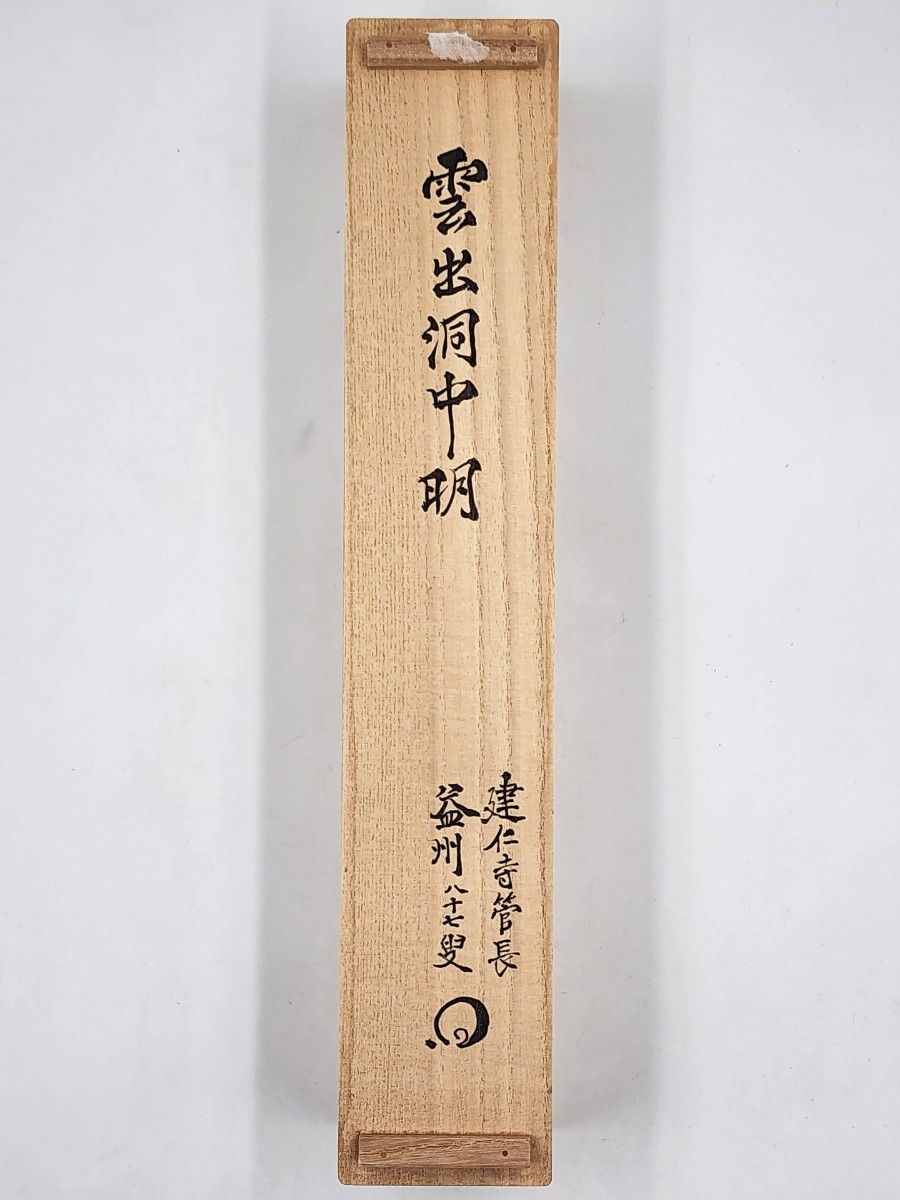 雲出洞中明
建仁寺管長
益州八十七叟